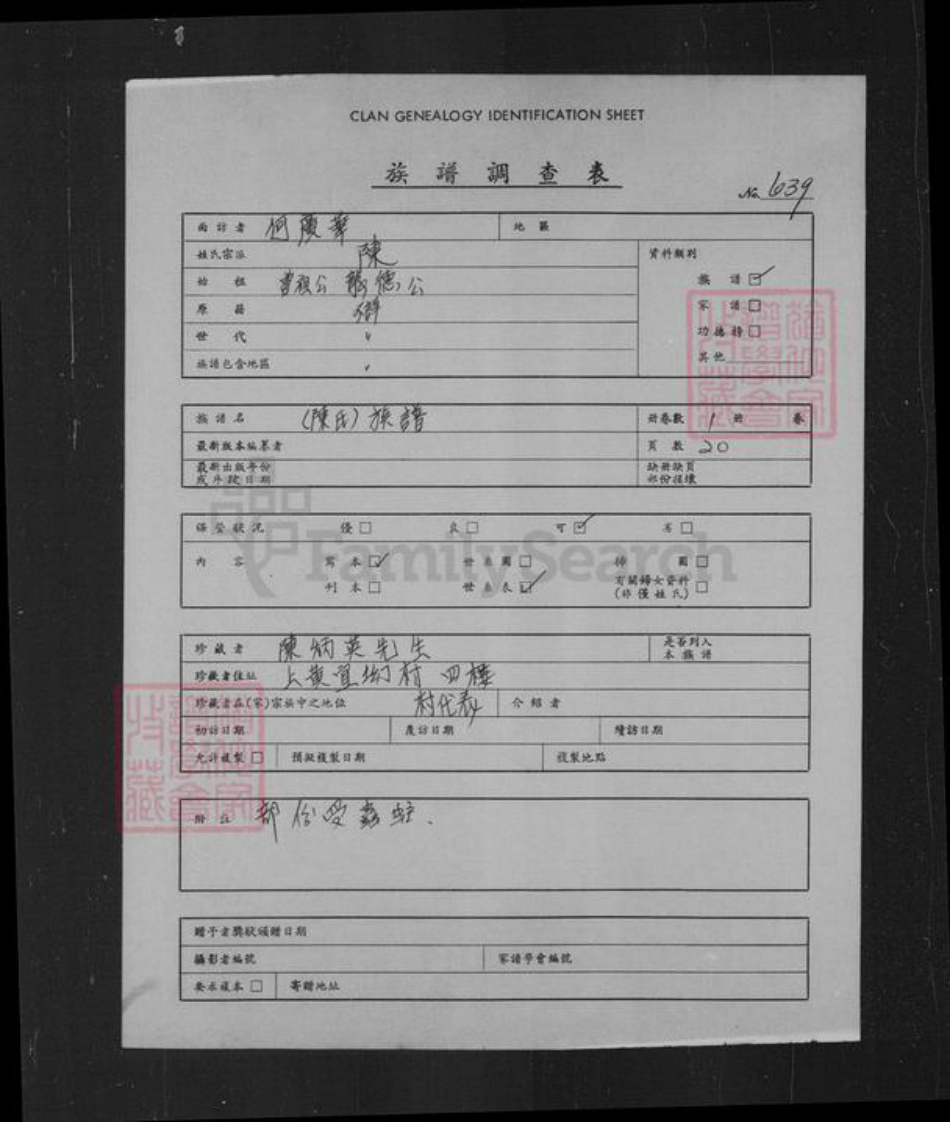 CLAN GENEALOGY IDENTIFICATION SHEET
族譜調查表
No. 639
面訪者 何慶華 地區
姓氏宗派 陳 資料類別
始祖 德公 族譜 ☑
原籍 家譜 □
世代 〃 功德榜 □
族譜包含地區 〃 其他
族譜名 (陳氏)族譜 册卷數 1 册 卷
最新版本編纂者 頁數 20
最新出版年份 缺册缺頁
或手段日期 部份損壞
保管狀況 優 □ 良 □ 可 ☑ 劣 □
內容 寫本 ☑ 世系圖 □ 掃圖 □
刊本 □ 世系表 ☑ 有關婦女資料 □
(非僅姓氏)
珍藏者 陳炳英先生 是否列入
本族譜
珍藏者住址 上黃宜坳村 四樓
珍藏者在(家)宗族中之地位 村代表 介紹者
初訪日期 覆訪日期 續訪日期
允許複製 □ 預擬複製日期 複製地點
附註 部份受蟲蛀.
贈予者獎狀頒贈日期
攝影者編號 家譜學會編號
要求複本 □ 寄贈地址
FamilySearch